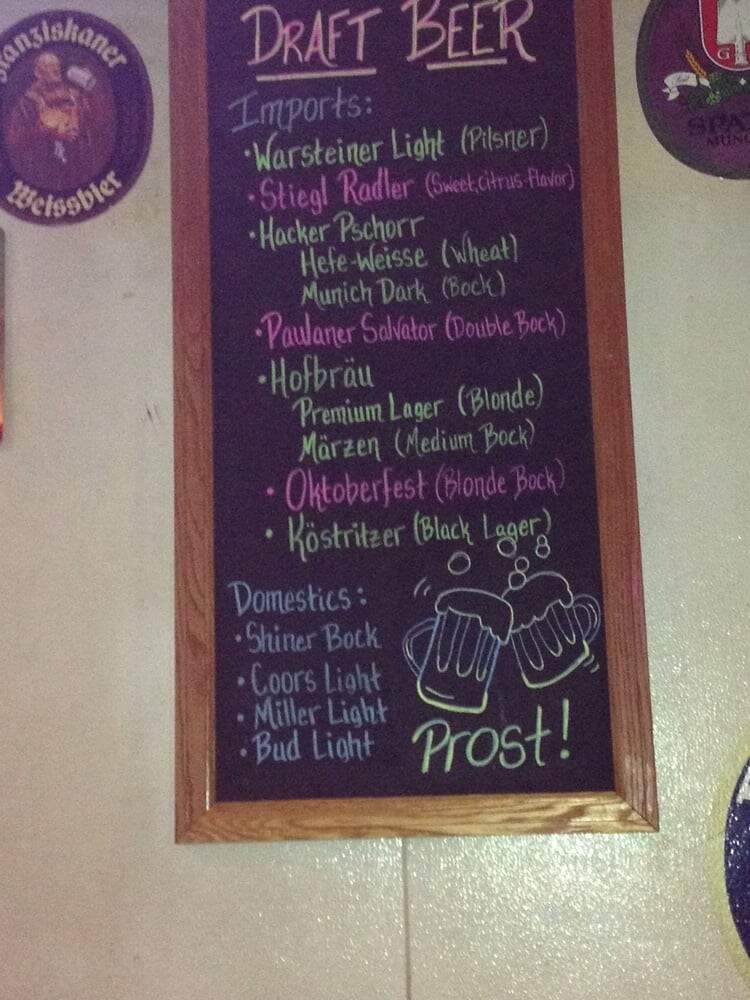 DRAFT BEER
Imports:
• Warsteiner Light (Pilsner)
• Stiegl Radler (Sweet, citrus flavor)
• Hacker Pschorr
Hefe-Weisse (Wheat)
Munich Dark (Bock)
• Paulaner Salvator (Double Bock)
• Hofbräu
Premium Lager (Blonde)
Märzen (Medium Bock)
• Oktoberfest (Blonde Bock)
• Köstritzer (Black Lager)
Domestics:
• Shiner Bock
• Coors Light
• Miller Light
• Bud Light
Prost!
Weissbier
G